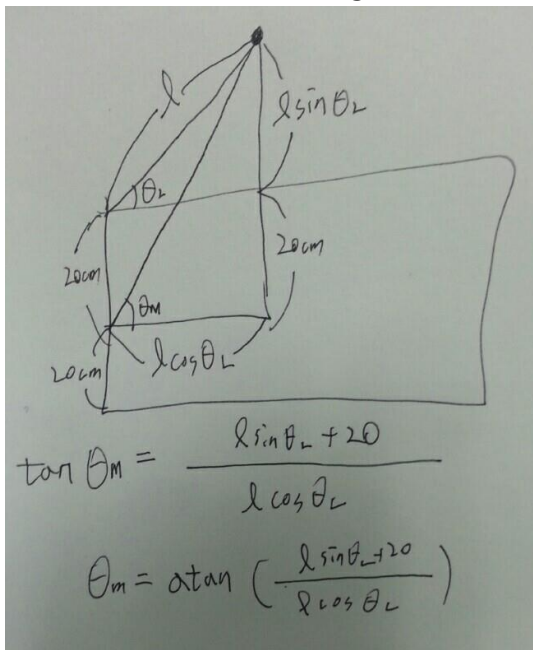 l
l sin θL
θL
20cm
20cm
θM
l cos θL
20cm
tan θm = (l sin θL + 20) / (l cos θL)
θm = atan ( (l sin θL + 20) / (l cos θL) )